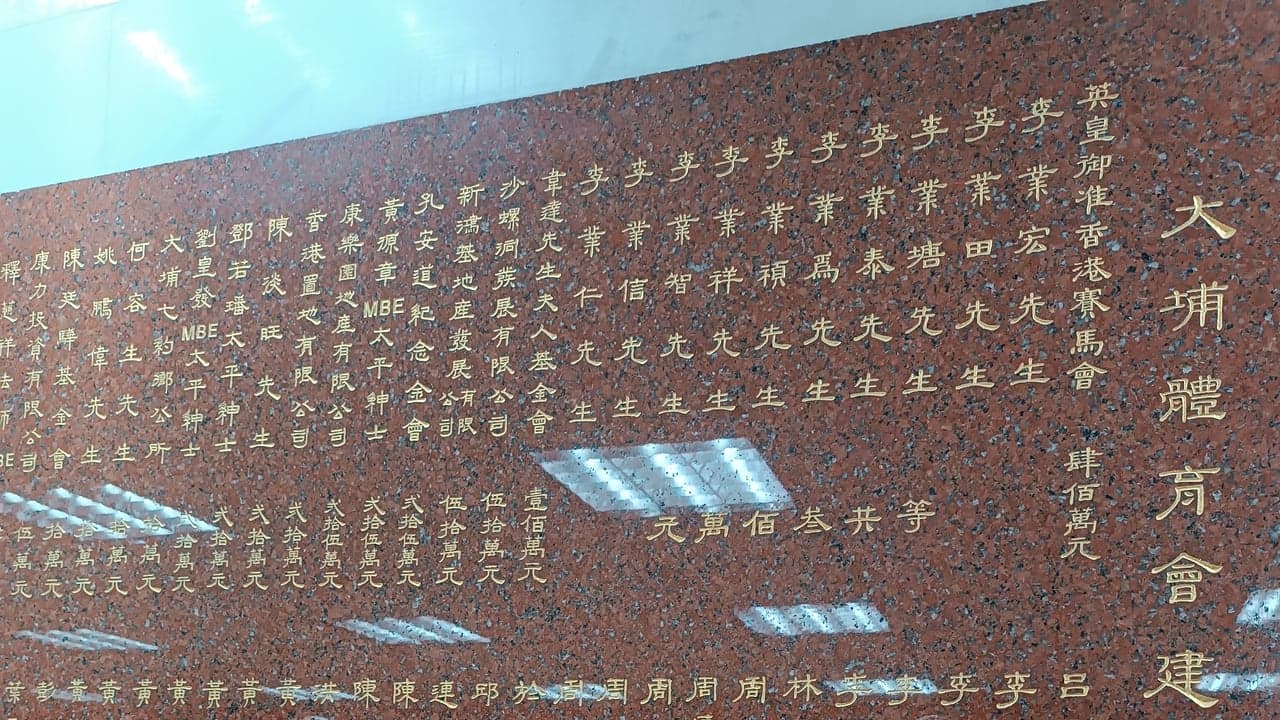 大埔體育會建
英皇御准香港賽馬會 肆佰萬元
李業宏先生
李業田先生
李業塘先生
李業泰先生
李業為先生
李業禎先生
李業祥先生
李業智先生
李業信先生
李業仁先生
等共叁佰萬元
韋達先生夫人基金會 壹佰萬元
沙螺洞發展有限公司 伍拾萬元
新鴻基地產發展有限公司 伍拾萬元
孔安道紀念金會 弍拾伍萬元
黃源章MBE太平紳士 弍拾伍萬元
康樂園地產有限公司 弍拾伍萬元
香港置地有限公司 弍拾萬元
陳淡旺先生 弍拾萬元
鄧若璠太平紳士 弍拾萬元
劉皇發MBE太平紳士 弍拾萬元
大埔七約鄉公所 拾萬元
何容生先生 拾萬元
姚鵬偉先生 拾萬元
陳廷驊基金會 拾萬元
康力投資有限公司 萬元
釋慧祥法師
呂
李
李
李
李
林
周
周
周
周
周
於
邱
連
陳
陳
洪
黃
黃
黃
黃
黃
黃
黃
彭
葉